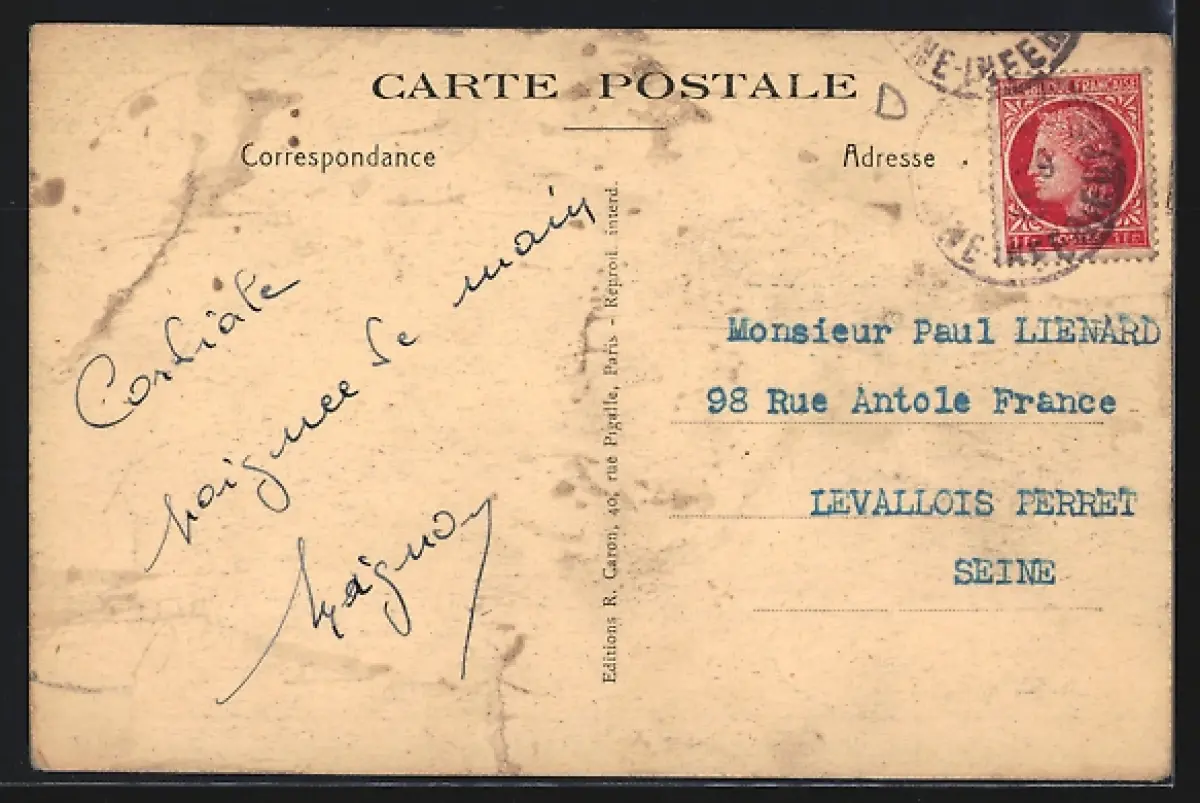 CARTE POSTALE
Correspondance
Adresse
D
NE-INFER
REPUBLIQUE FRANÇAISE
1F
1F
NE-INFER
Cordiale
poignee de main
Monsieur Paul LIENARD
98 Rue Antole France
LEVALLOIS PERRET
SEINE
Editions R. Caron, 40, rue Pigalle, Paris - Reprod. interd.